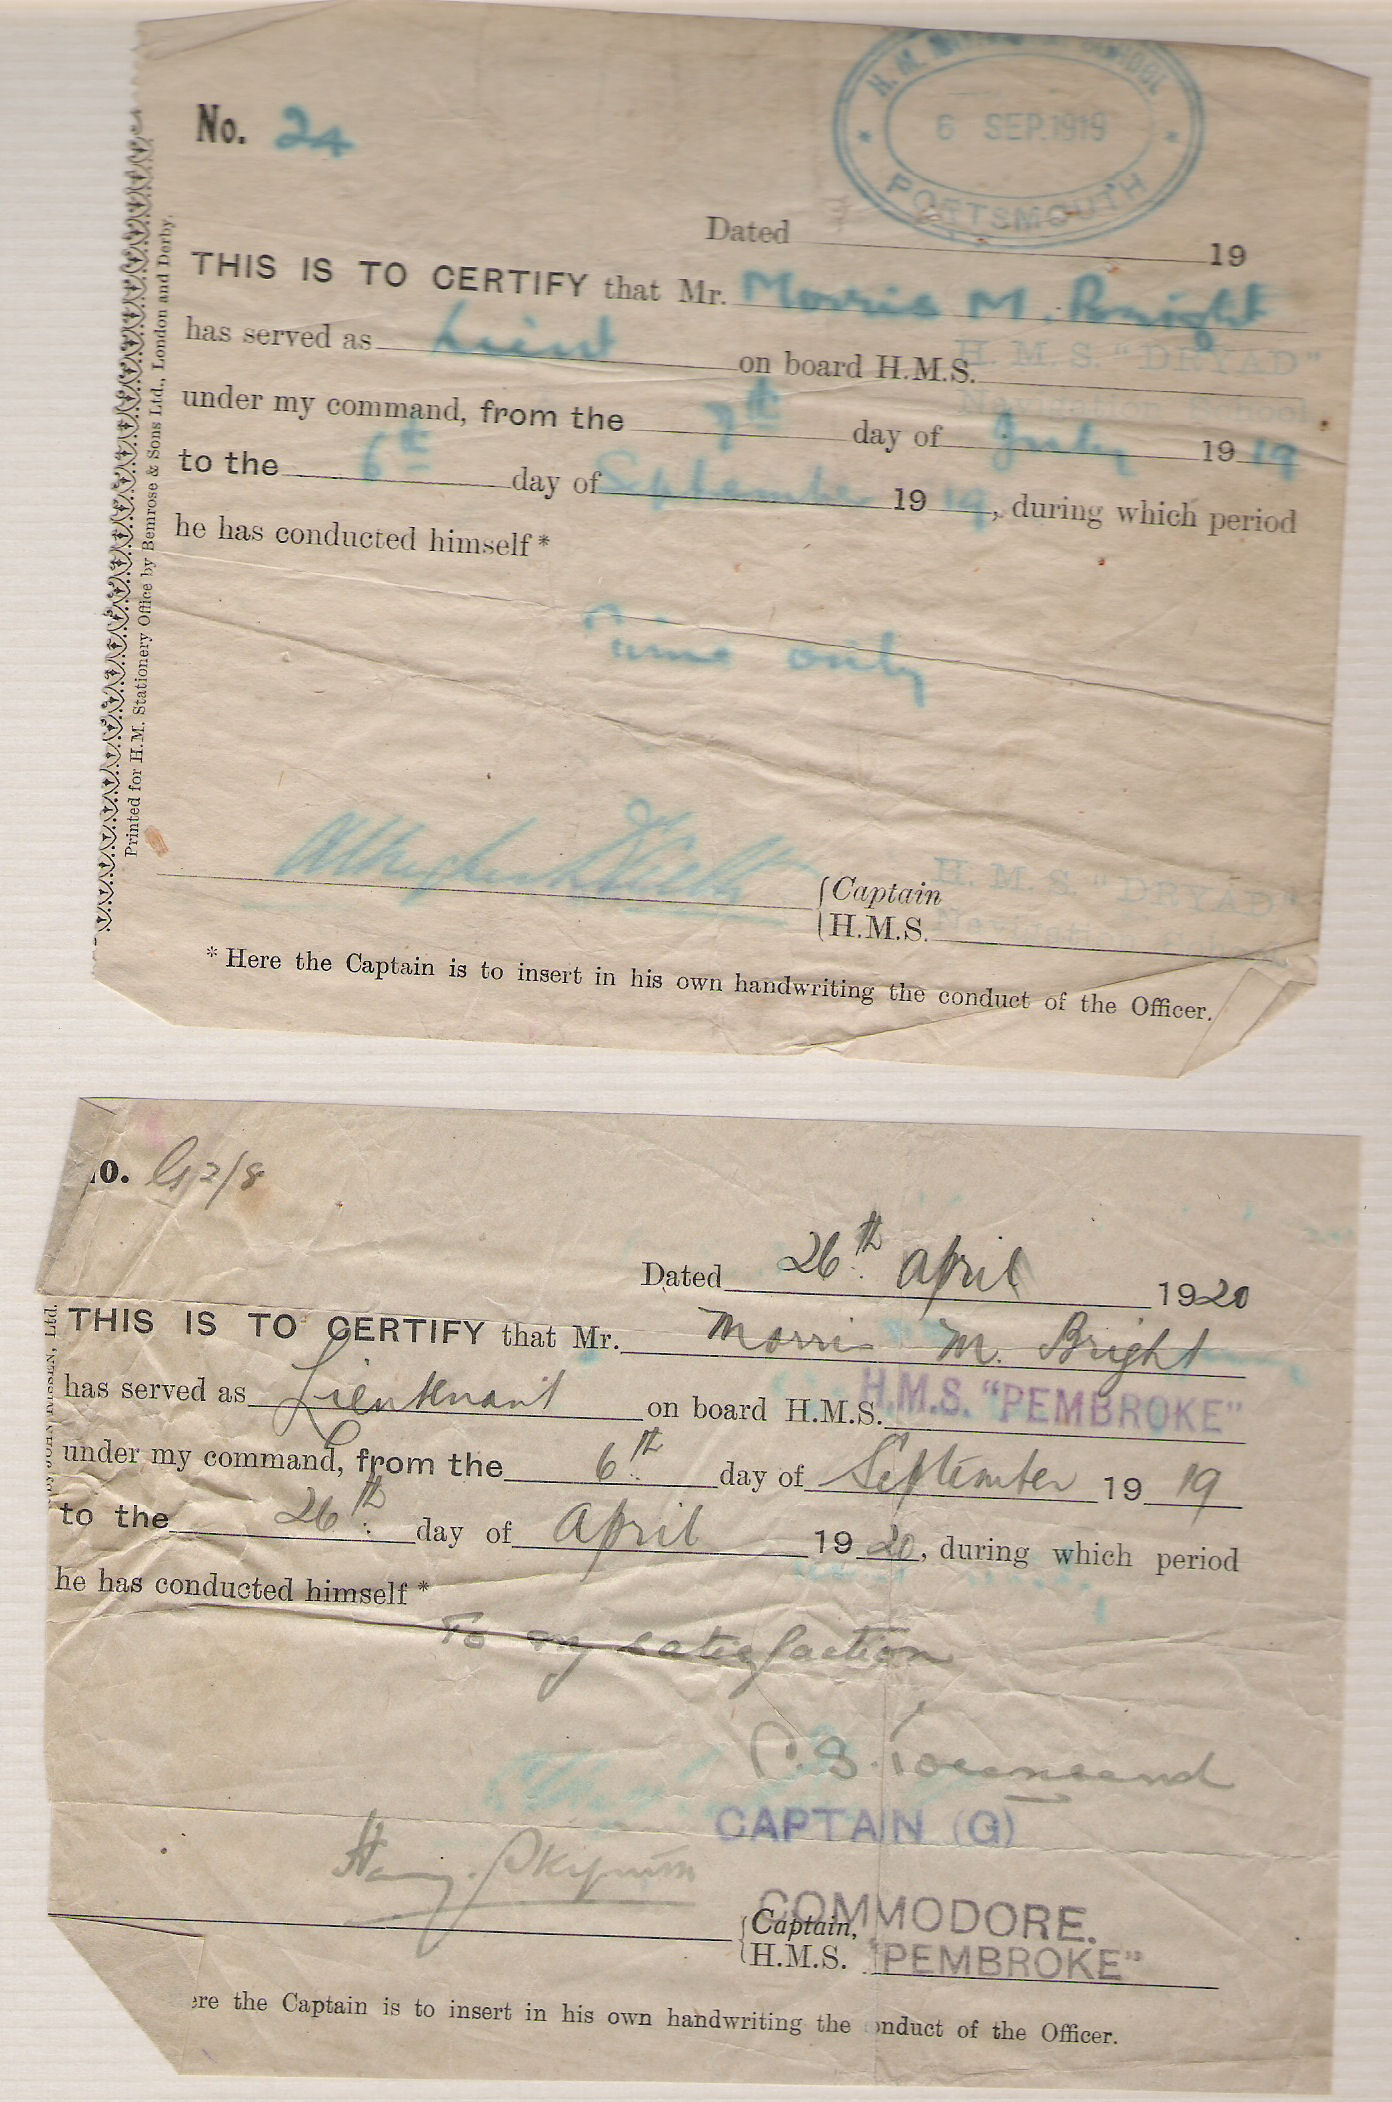 H.M. SCHOOL
6 SEP. 1919
PORTSMOUTH
No. 24
Dated 19
THIS IS TO CERTIFY that Mr. Morris M. Bright
has served as Lieut on board H.M.S. H.M.S. "DRYAD"
Navigation School
under my command, from the 7th day of July 1919
to the 6th day of September 1919, during which period
he has conducted himself*
Time only
{Captain H.M.S. "DRYAD"
{H.M.S. Navigation School
* Here the Captain is to insert in his own handwriting the conduct of the Officer.
Printed for H.M. Stationery Office by Bemrose & Sons Ltd., London and Derby.
o. G 2/8
Dated 26th April 1920
THIS IS TO CERTIFY that Mr. Morris M. Bright
has served as Lieutenant on board H.M.S. H.M.S. "PEMBROKE"
under my command, from the 6th day of September 1919
to the 26th day of April 1920, during which period
he has conducted himself*
To my satisfaction
C. S. Townsend
CAPTAIN (G)
COMMODORE.
{Captain,
{H.M.S. "PEMBROKE"
ere the Captain is to insert in his own handwriting the onduct of the Officer.